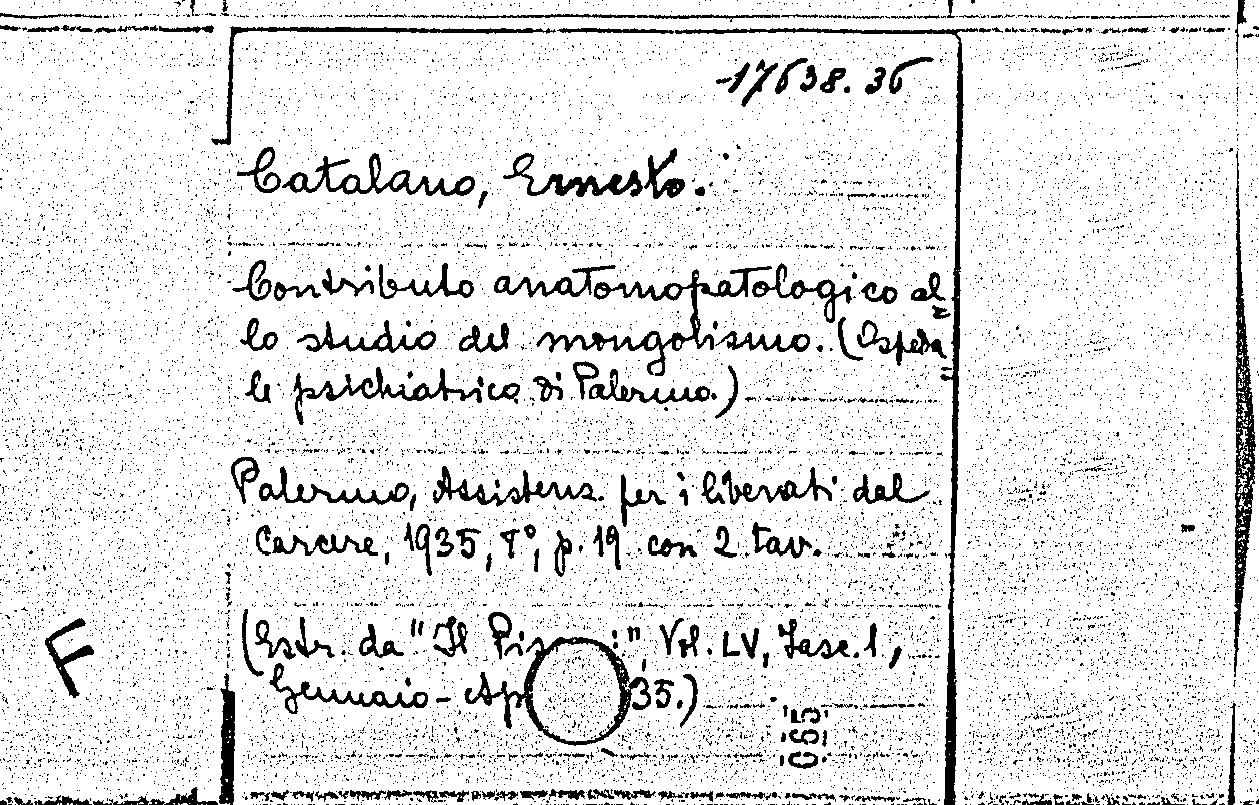 17638.36
Catalano, Ernesto.
Contributo anatomopatologico al=
lo studio del mongolismo. (Ospeda=
le psichiatrico di Palermo.)
Palermo, Assistenz. per i liberati dal
Carcere, 1935, 8°, p. 19 con 2 tav.
(Estr. da "Il Pis i", Vol. LV, Fasc. 1,
Gennaio - Ap 35.)
065
F